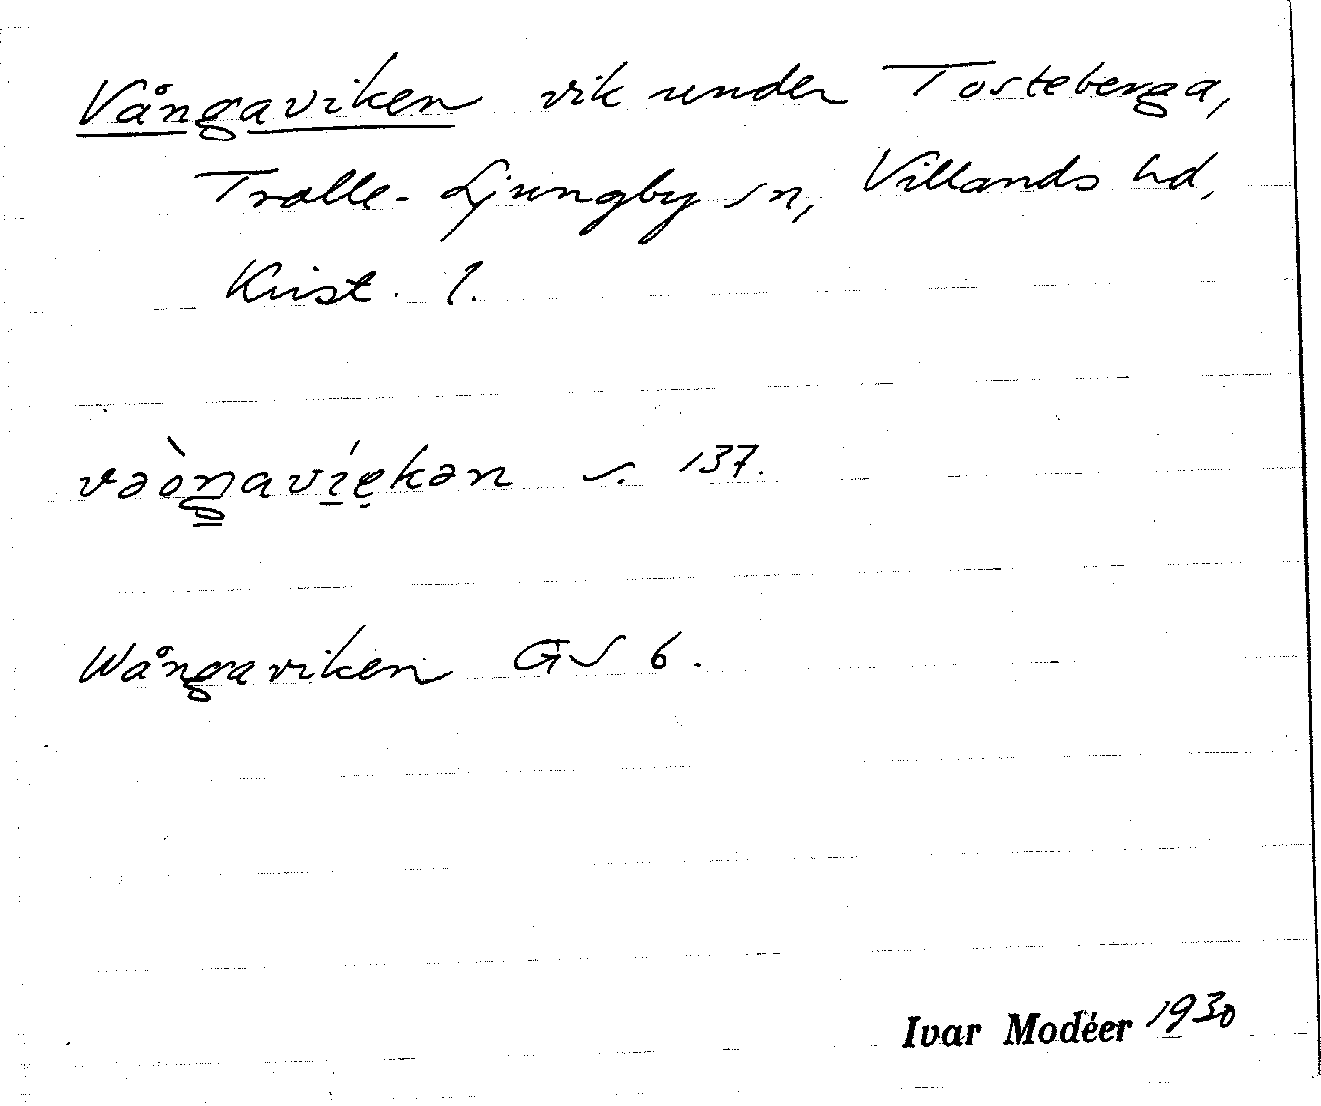 Vångaviken vik under Tosteberga,
Tralle-Ljungby sn, Villands hd,
Krist. l.
vəòŋavíe̩kən s. 137.
Wångaviken GS 6.
Ivar Modéer 1930